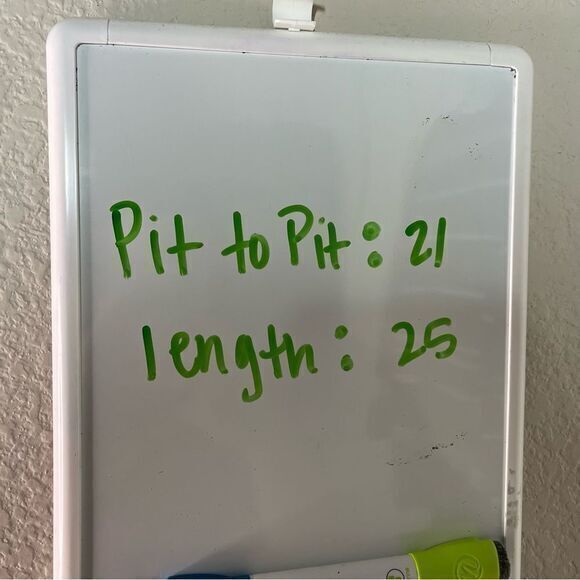 Pit to Pit: 21
length: 25